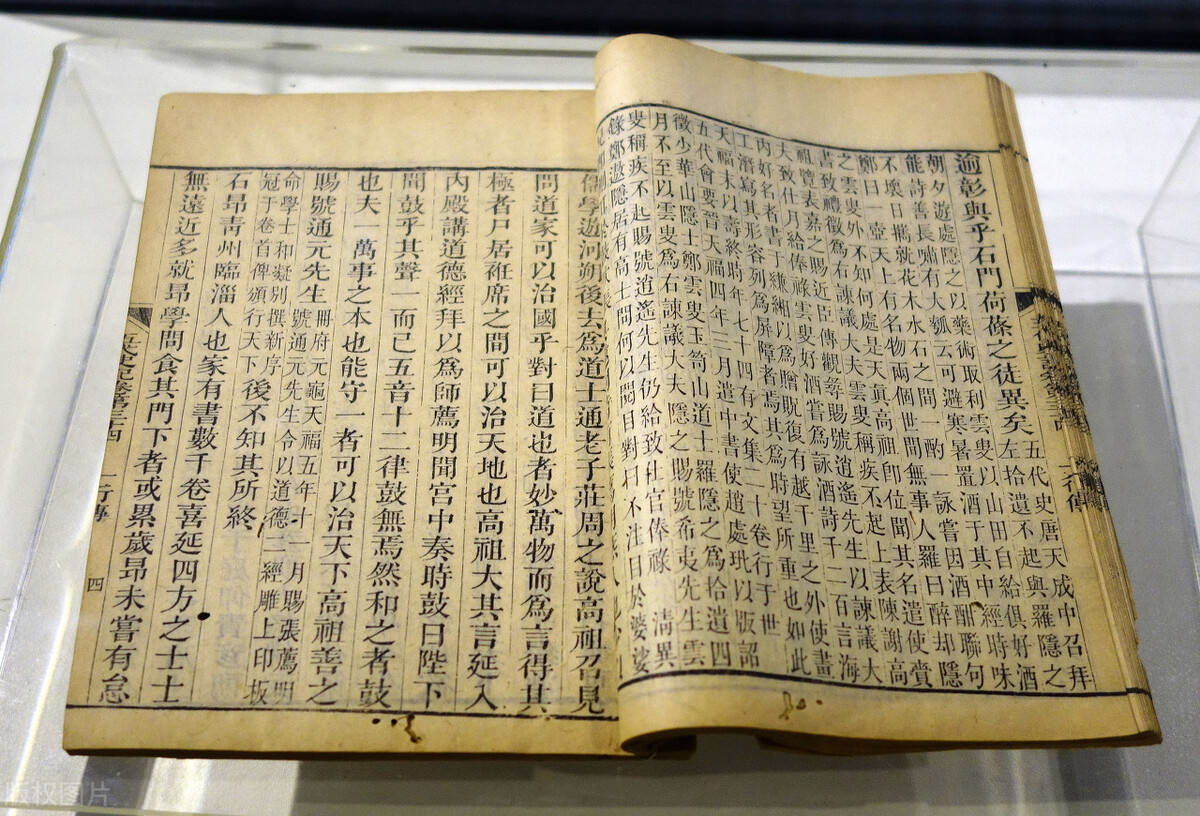 逾彰與乎石門荷蓧之徒異矣
五代史唐天成中召拜
左拾遺不起與羅隱之
朝夕遊處隱之以藥術取利雲叟以山田自給俱好酒
能詩善長嘯有大瓠云可避寒暑置酒于其中經時味
不壞日攜就花木水石之間一酌一詠嘗因酒酣聯句
鄭曰一壺天上有名物兩個世間無事人羅曰醉却隱
之雲叟外不知何處是天真高祖即位聞其名遣使賞
書致禮徵爲右諫議大夫雲叟稱疾不起上表陳謝高
祖覽表嘉之賜近臣傳觀尋賜號逍遙先生以諫議大
夫致仕月給俸祿雲叟好酒嘗爲詠酒詩千二百言海
內好名者書于縑緗以爲贈貺復有越千里之外使畫
工潛寫其形容列爲屏障者焉其爲時望所重也如此
天福末以壽終時年七十四有文集二十卷行于世
五代會要晉天福四年三月遣中書使趙處玭以版詔
徵少華山隱士鄭雲叟玉笥山道士羅隱之爲拾遺四
月不至以雲叟爲右諫議大夫隱之賜號希夷先生雲
叟稱疾不起賜號逍遙先生仍給致仕官俸祿 清異
錄鄭遨隱居有高士問何以閱目對曰不注目於婆娑
儒學遊河朔後去爲道士通老子莊周之說高祖召見
問道家可以治國乎對曰道也者妙萬物而爲言得其
極者尸居袵席之間可以治天地也高祖大其言延入
內殿講道德經拜以爲師薦明聞宮中奏時鼓曰陛下
聞鼓乎其聲一而已五音十二律鼓無焉然和之者鼓
也夫一萬事之本也能守一者可以治天下高祖善之
賜號通元先生
冊府元龜天福五年十一月賜張薦明
號通元先生令以道德二經雕上印板
命學士和凝別撰新序
冠于卷首俾頒行天下
後不知其所終
石昂青州臨淄人也家有書數千卷喜延四方之士士
無遠近多就昂學問食其門下者或累歲昂未嘗有怠
一行傳
四
版权图片